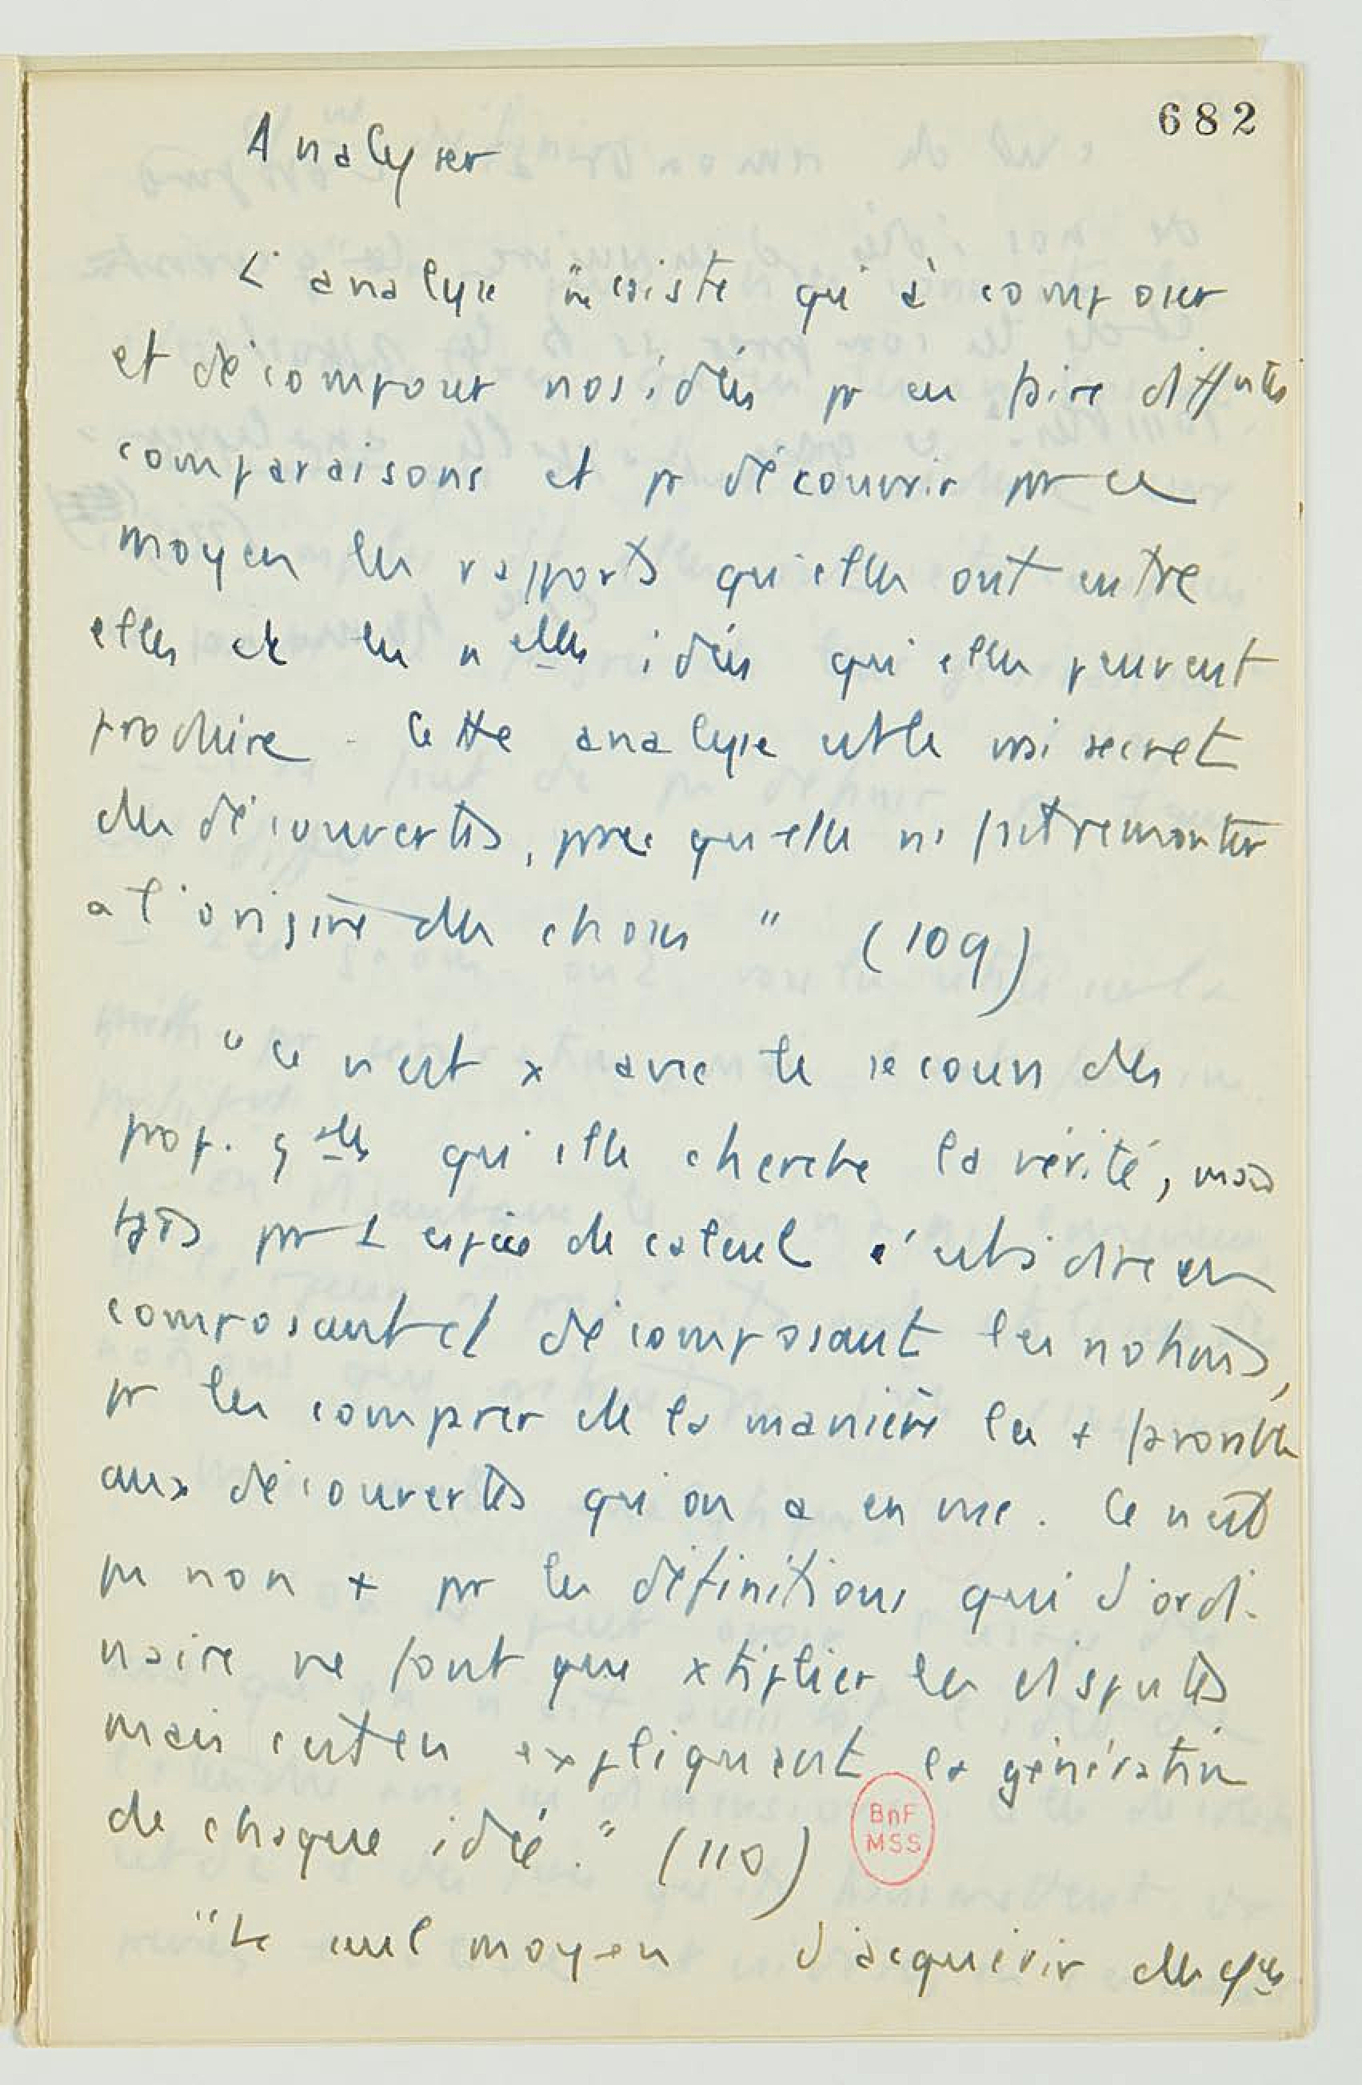 682
Analyser
L'analyse "ne csiste qu'à composer
et décomposer nos idées pr en faire difftes
comparaisons et pr découvrir pr ce
moyen les rapports qu'elles ont entre
elles et les nelles idées qu'elles peuvent
produire. Cette analyse est le vrai secret
des découvertes, parce qu'elle ns fait remonter
a l'origine des choses" (109)
"Ce n'est x avec le secours des
prop. gelles qu'elle cherche la vérité, mais
tjrs pr 1 espèce de calcul c'est à dire en
composant et décomposant les notions,
pr les comparer de la manière la + favorable
aux découvertes qu'on a en vue. Ce n'est
pas non + pr les définitions qui d'ordi-
naire ne font que xtiplier les disputes
mais c'est en expliquant la génération
de chaque idée." (110)
BnF
MSS
"Le seul moyen d'acquérir des